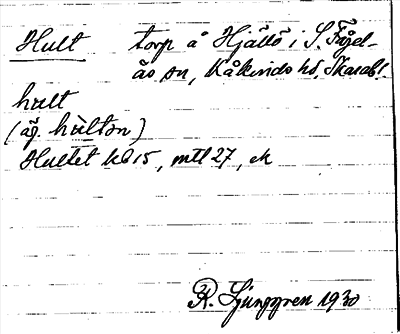 Hult torp å Hjällö i S. Fågel-
ås sn, Kåkinds hd, Skarab l.
hult
(äg. hùltɘn)
Hultet kb 15, mtl 27, ek
R. Ljunggren 1930